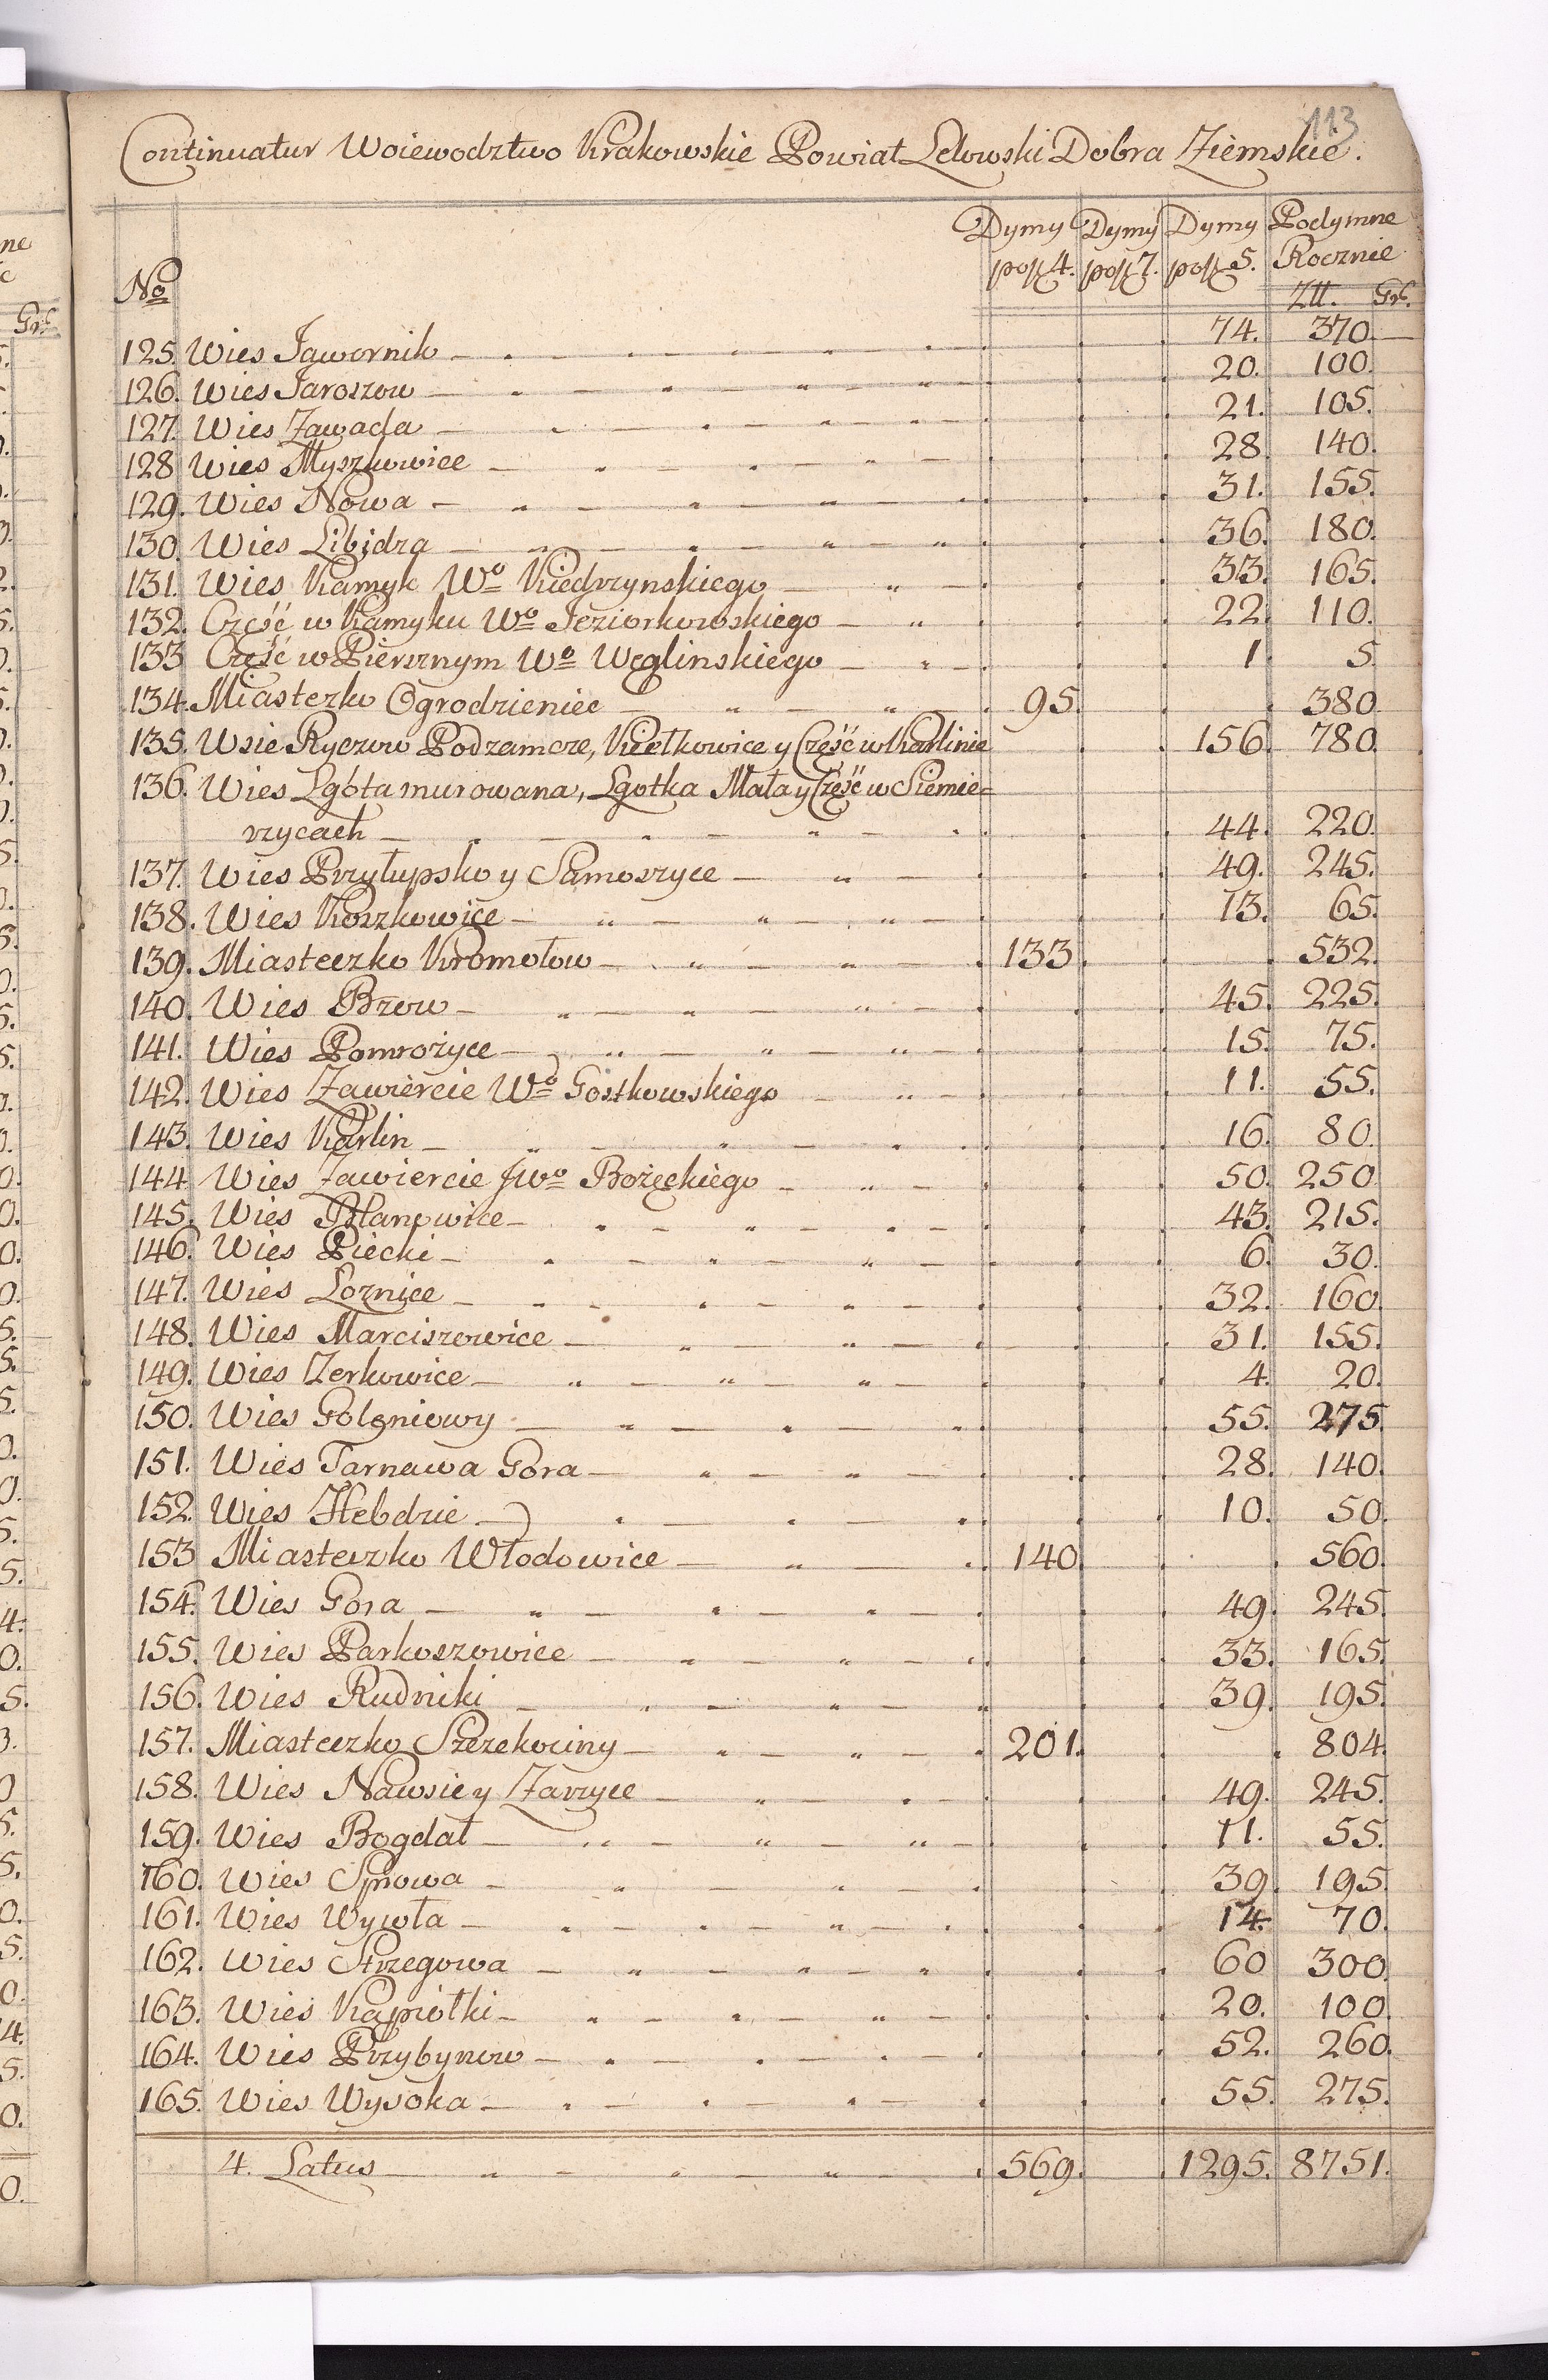 113
Continuatur Woiewodztwo Krakowskie Powiat Lelowski Dobra Ziemskie.
No Dymy po fl 4. Dymy po fl 7. Dymy po fl 5. Podymne Rocznie
Złł. Gr.
125. Wies Jawornik 74. 370.
126. Wies Jaroszow 20. 100.
127. Wies Zawada 21. 105.
128 Wies Myszkowice 28. 140.
129. Wies Nowa 31. 155.
130. Wies Libidza 36. 180.
131. Wies Kamyk Wo Kiedrzynskiego 33. 165.
132. Część w Kamyku Wo Jeziorkowskiego 22. 110.
133 Część w Pierznym Wo Węglinskiego 1 5.
134. Miasteczko Ogrodzieniec 95. 380
135. Wsie Ryczow Podzamcze, Kiełkowice y Część w Karlinie 156. 780.
136. Wies Lgóta murowana, Lgotka Mała y Część w Siemie=
rzycach 44. 220.
137. Wies Przyłupsko y Samoszyce 49. 245.
138. Wies Koszkowice 13. 65.
139. Miasteczko Kromołow 133. 532.
140. Wies Bzow 45. 225.
141. Wies Pomrożyce 15. 75.
142. Wies Zawiercie Wo Gostkowskiego 11. 55.
143. Wies Karlin 16. 80.
144. Wies Zawiercie JWo Bożęckiego 50. 250.
145. Wies Blanowice 43. 215.
146. Wies Piecki 6. 30.
147. Wies Łoznice 32. 160.
148. Wies Marciszowice 31. 155.
149. Wies Zerkowice 4. 20.
150. Wies Goleniowy 55. 275.
151. Wies Tarnawa Gora 28. 140.
152. Wies Hebdzie 10. 50.
153 Miasteczko Włodowice 140. 560.
154. Wies Gora 49. 245.
155. Wies Parkoszowice 33. 165.
156. Wies Rudniki 39. 195.
157. Miasteczko Szczekociny 201. 804.
158. Wies Nawsie y Zarzyce 49. 245.
159. Wies Bogdał 11. 55.
160. Wies Spowa 39. 195.
161. Wies Wywła 14. 70.
162. Wies Strzegowa 60 300.
163. Wies Kąpiołki 20. 100.
164. Wies Przybynow 52. 260.
165. Wies Wysoka 55. 275.
4. Latus 569. 1295. 8751.